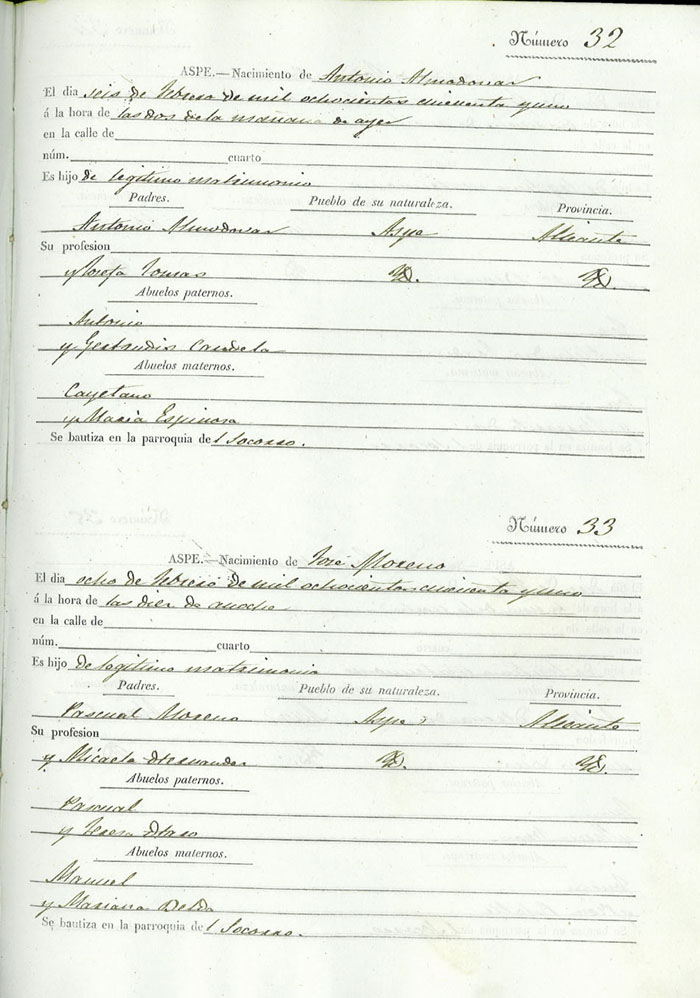 Número 32
ASPE.—Nacimiento de Antonio Almodovar
El dia seis de Febrero de mil ochocientos cincuenta y uno
á la hora de las dos de la mañana de ayer
en la calle de
núm. cuarto
Es hijo de legitimo matrimonio
Padres. Pueblo de su naturaleza. Provincia.
Antonio Almodovar Aspe Alicante
Su profesion
y Josefa Tomas Yd. Yd.
Abuelos paternos.
Antonio
y Gertrudis Candela
Abuelos maternos.
Cayetano
y Maria Espinosa
Se bautiza en la parroquia del Socorro.
Número 33
ASPE.—Nacimiento de José Moreno
El dia ocho de Febrero de mil ochocientos cincuenta y uno
á la hora de las diez de anoche
en la calle de
núm. cuarto
Es hijo de legitimo matrimonio
Padres. Pueblo de su naturaleza. Provincia.
Pascual Moreno Aspe Alicante
Su profesion
y Micaela Hernandez Yd. Yd.
Abuelos paternos.
Pascual
y Teresa
Abuelos maternos.
Manuel
y Mariana Belda
Se bautiza en la parroquia del Socorro.